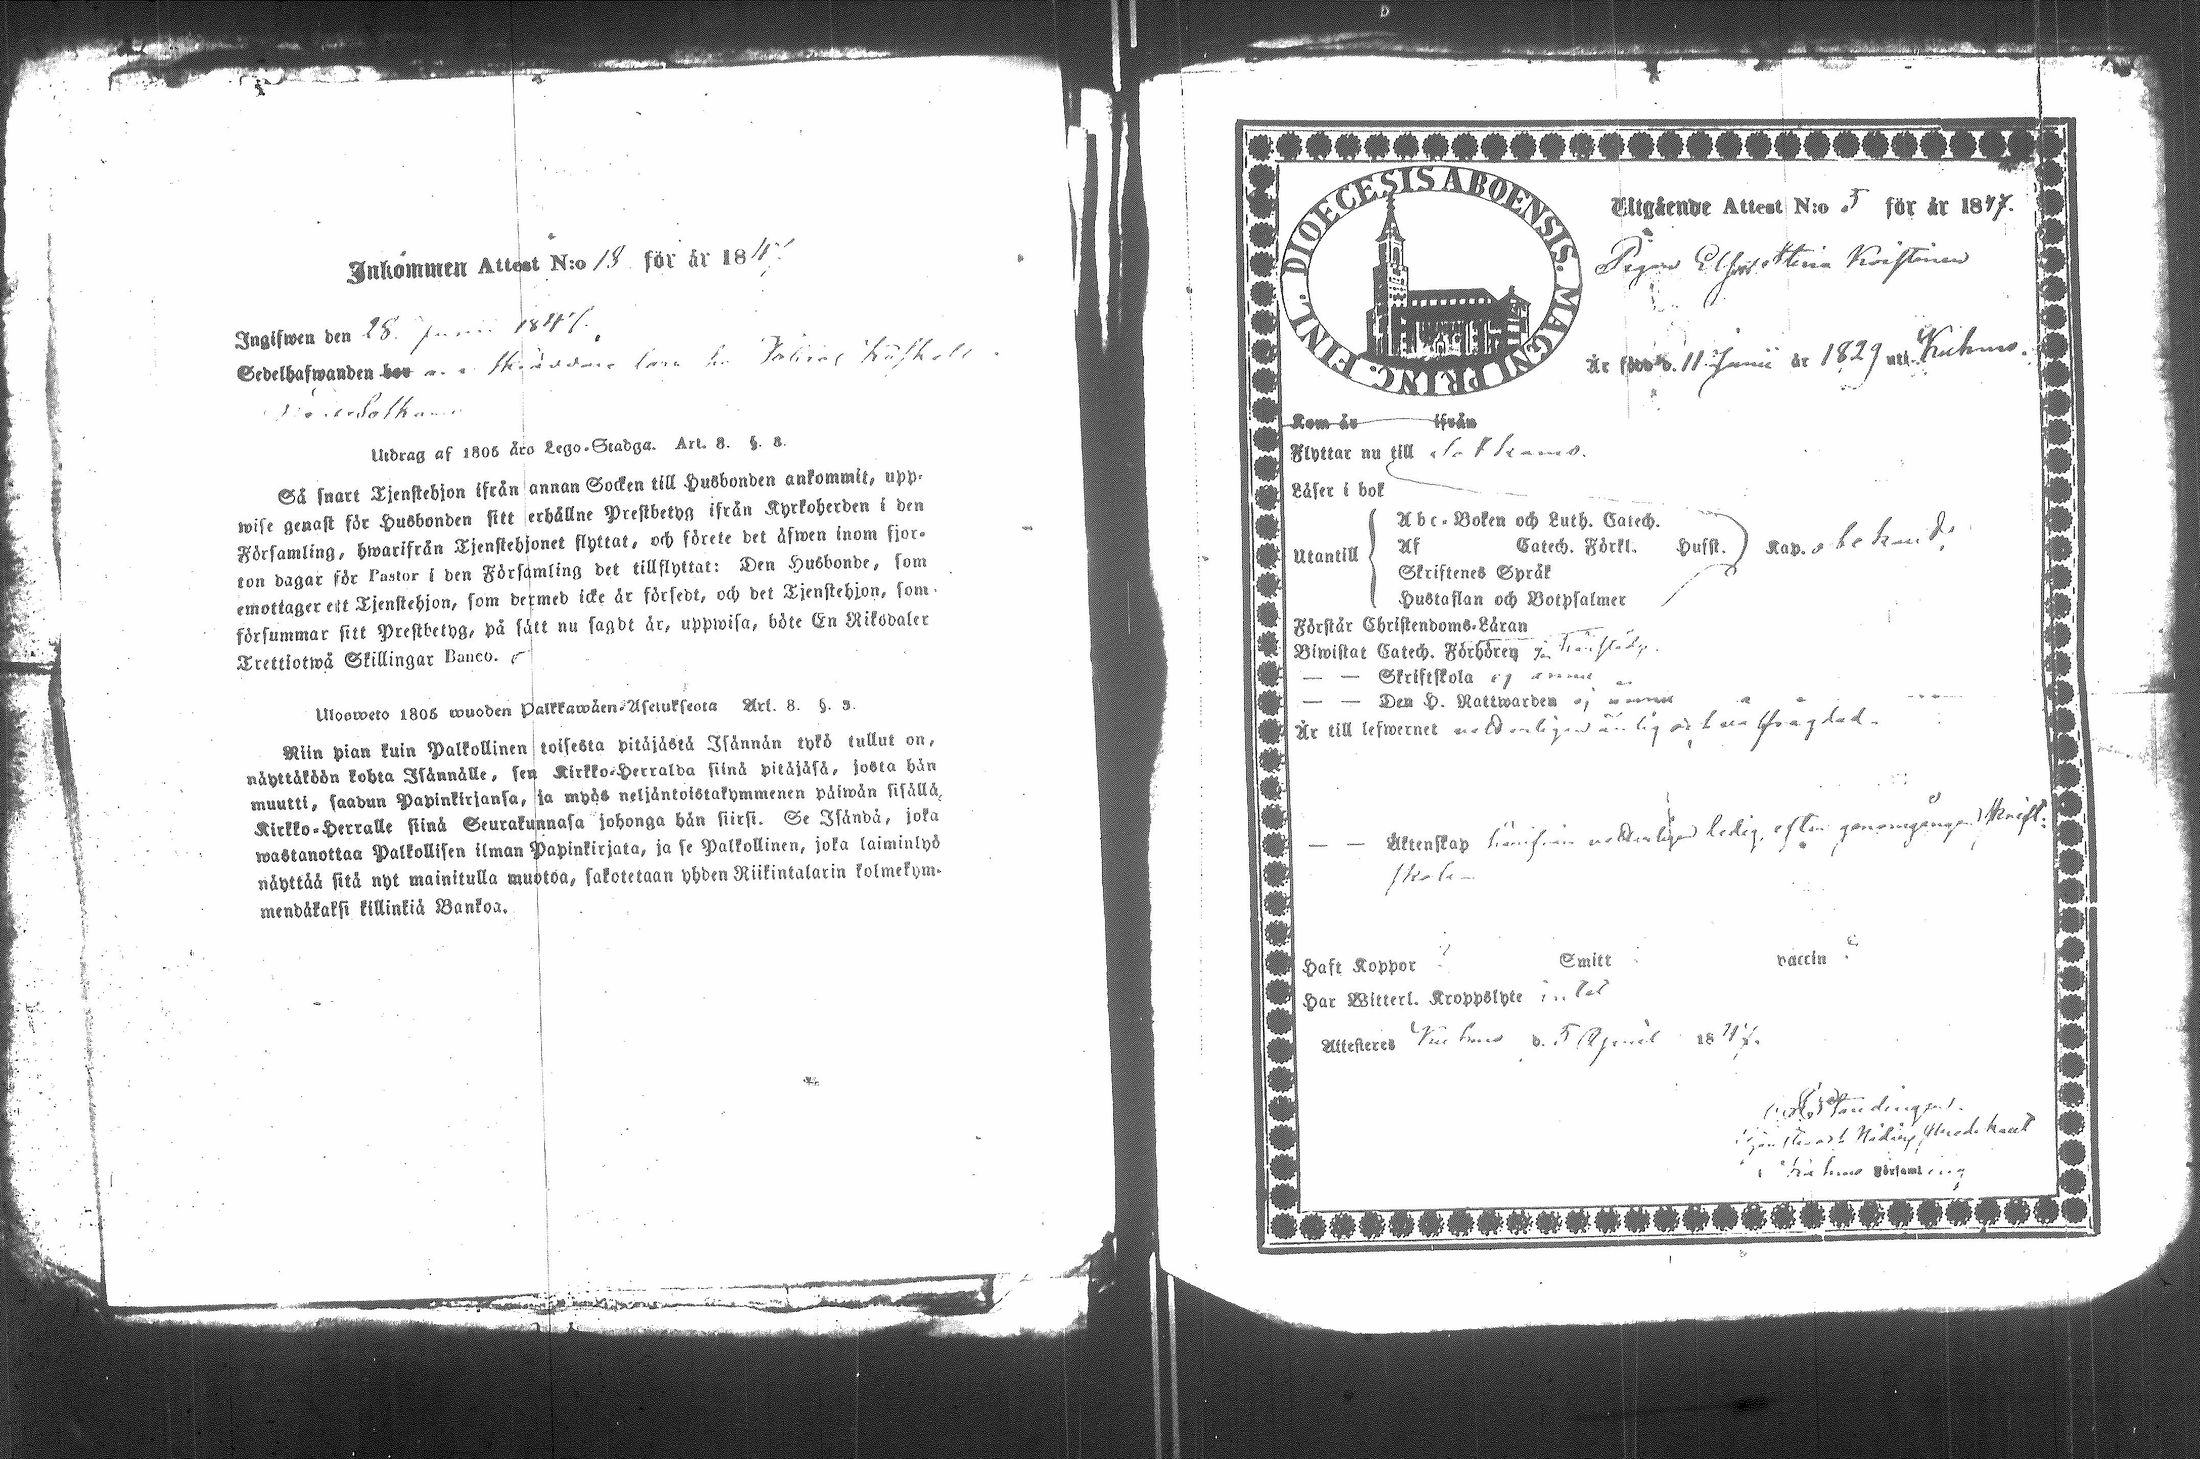 Inkommen Attest N:o 18 för år 1847.
Ingifwen den 28 Junii 1847.
Sedelhafwanden
Utdrag af 1805 års Lego-Stadga. Art. 8. §. 3.
Så snart Tjenstehjon ifrån annan Socken till Husbonden ankommit, upp-
wise genast för Husbonden sitt erhållne Prestbetyg ifrån Kyrkoherden i den
Församling, hwarifrån Tjenstehjonet flyttat, och förete det äfwen inom fjor-
ton dagar för Pastor i den Församling det tillflyttat: Den Husbonde, som
emottager ett Tjenstehjon, som dermed icke är försedt, och det Tjenstehjon, som
försummar sitt Prestbetyg, på sätt nu sagdt är, uppwisa, böte En Riksdaler
Trettiotwå Skillingar Banco.
Ulosweto 1805 wuoden Palkkawäen-Asetuksesta Art. 8. §. 3.
Niin pian kuin Palkollinen toisesta pitäjästä Isännän tykö tullut on,
näyttäköön kohta Isännälle, sen Kirkko-Herralda siinä pitäjäsä, josta hän
muutti, saadun Papinkirjansa, ja myös neljäntoistakymmenen päiwän sisällä,
Kirkko-Herralle siinä Seurakunnasa johonga hän siirsi. Se Isändä, joka
wastanottaa Palkollisen ilman Papinkirjata, ja se Palkollinen, joka laiminlyö
näyttää sitä nyt mainitulla muotoa, sakotetaan yhden Riikintalarin kolmekym-
mendäkaksi killinkiä Bankoa.
DIOECESIS ABOENSIS. MAGNI PRINC. FINL.
Utgående Attest N:o 5 för år 1847.
Pigan Stina Koistinen
Är född d. 11 Junii år 1829 uti Kuhmo.
Kom år ifrån
Flyttar nu till Sotkamo.
Läser i bok
Abc-Boken och Luth. Catech.
Utantill Af Catech. Förkl. Husst. Kap. obekand.
Skriftenes Språk
Hustaflan och Botpsalmer
Förstår Christendoms-Läran
Biwistat Catech. Förhören
— — Skriftskola ej ännu
— — Den H. Nattwarden ej ännu
Är till lefwernet
— — Äktenskap härifrån ledig, efter genomgången Skrift-
skola
Haft Koppor ? Smitt vaccin ?
Har Witterl. Kroppslyte intet
Attesteras Kuhmo d. 5 April 1847.
Kuhmo Församling